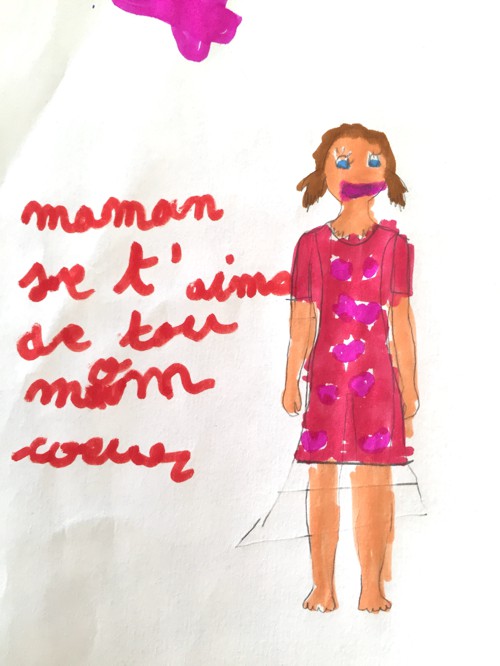 maman
je t'aime
de tou
mom
coeur